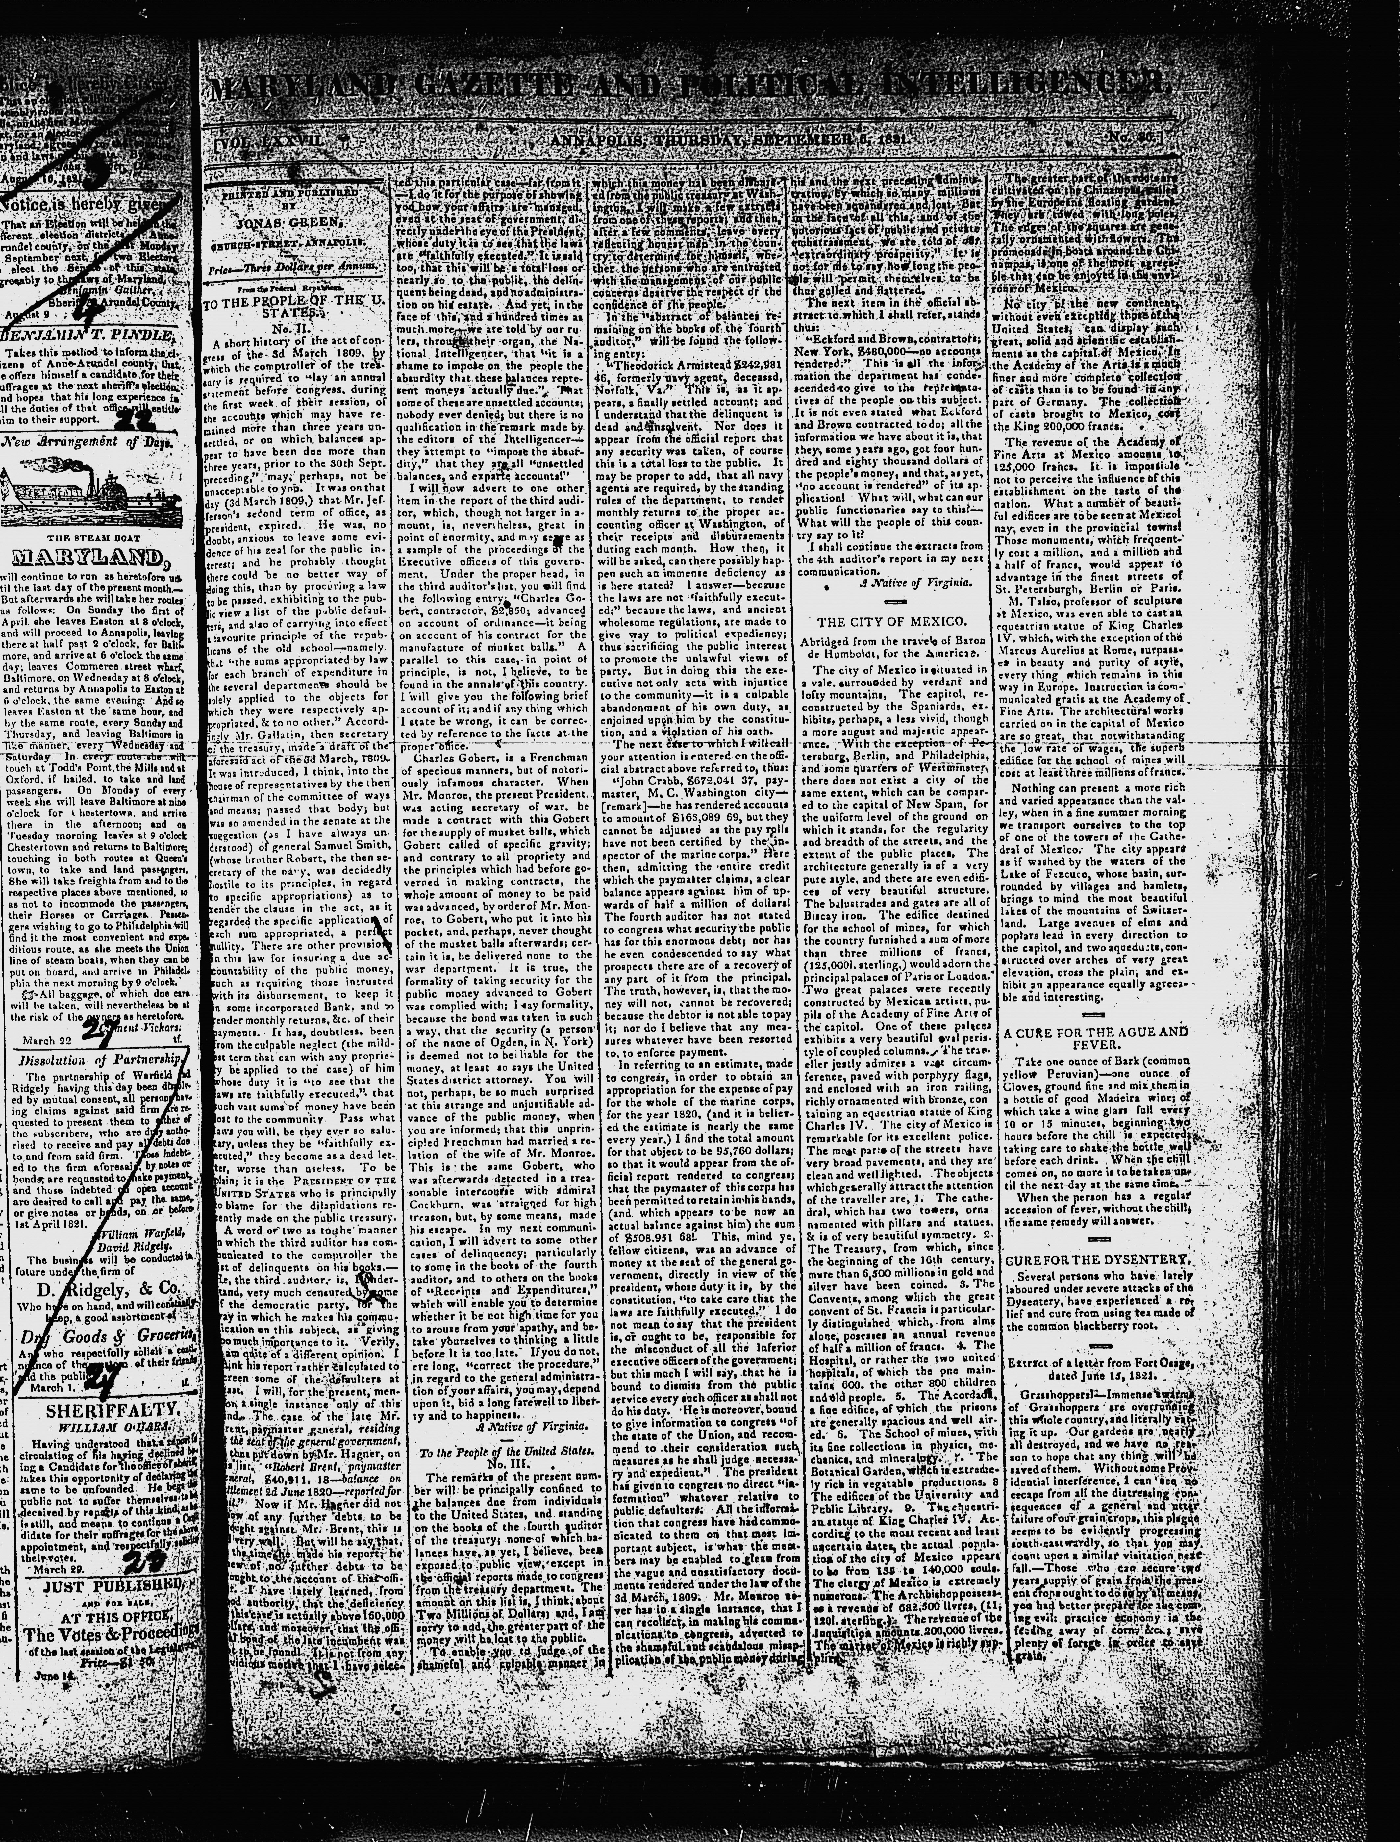 Notice is hereby given,
That an Election will be held in the
September next, for two Electors
Benjamin Gaither,
Sheriff Arundel County.
BENJAMIN T. PINDLE,
Takes this method to inform the ci-
izens of Anne-Arundel county, that
e offers himself a candidate for their
uffrages at the next sheriff's election,
nd hopes that his long experience in
ll the duties of that office will entitle
im to their support.
New Arrangement of Days.
THE STEAM BOAT
MARYLAND,
will continue to run as heretofore un-
til the last day of the present month.—
But afterwards she will take her routes
as follows: On Sunday the first of
April she leaves Easton at 8 o'clock,
and will proceed to Annapolis, leaving
there at half past 2 o'clock, for Balti-
more, and arrive at 6 o'clock the same
day; leaves Commerce street wharf,
Baltimore, on Wednesday at 8 o'clock,
and returns by Annapolis to Easton at
6 o'clock, the same evening: And so
leaves Easton at the same hour, and
by the same route, every Sunday and
Thursday, and leaving Baltimore in
like manner, every Wednesday and
Saturday. In every route she will
touch at Todd's Point, the Mills and at
Oxford, if hailed, to take and land
passengers. On Monday of every
week she will leave Baltimore at nine
o'clock for Chestertown, and arrive
there in the afternoon; and on
Tuesday morning leaves at 9 o'clock
Chestertown and returns to Baltimore,
touching in both routes at Queen's
town, to take and land passengers.
She will take freights from and to the
respective places above mentioned, so
as not to incommode the passengers,
their Horses or Carriages. Passen-
gers wishing to go to Philadelphia will
find it the most convenient and expe-
ditious route, as she meets the Union
line of steam boats, when they can be
put on board, and arrive in Philadel-
phia the next morning by 9 o'clock.
All baggage, of which due care
will be taken, will nevertheless be at
the risk of the owners as heretofore.
Clement Vickars.
March 22 tf.
Dissolution of Partnership.
The partnership of Warfield and
Ridgely having this day been dissolv-
ed by mutual consent, all persons hav-
ing claims against said firm are re-
quested to present them to either of
the subscribers, who are duly autho-
rised to receive and pay all debts due
to and from said firm. Those indebt-
ed to the firm aforesaid, by notes or
bonds, are requested to make payment,
and those indebted on open account
are desired to call and pay the same,
or give notes or bonds, on or before
1st April 1821.
William Warfield,
David Ridgely.
The business will be conducted in
future under the firm of
D. Ridgely, & Co.
Who have on hand, and will constantly
keep, a good assortment of
Dry Goods & Groceries,
And who respectfully solicit a conti-
nuance of the custom of their friends
and the public.
March 1. tf.
SHERIFFALTY.
WILLIAM O'HARA,
Having understood that a report is
circulating of his having declined be-
ing a Candidate for the office of sheriff
takes this opportunity of declaring the
same to be unfounded. He begs the
public not to suffer themselves to be
deceived by reports of this kind, as he
is still, and means to continue a Can-
didate for their suffrages for the above
appointment, and respectfully solicits
their votes.
March 29.
JUST PUBLISHED,
AND FOR SALE,
AT THIS OFFICE,
The Votes & Proceedings
of the last session of the Legislature.
Price—$1 50.
June 14.
MARYLAND GAZETTE AND POLITICAL INTELLIGENCER.
[VOL. LXXVII. ANNAPOLIS, THURSDAY, SEPTEMBER 6, 1821. No.
PRINTED AND PUBLISHED
BY
JONAS GREEN,
CHURCH-STREET, ANNAPOLIS.
Price—Three Dollars per Annum.
From the Federal Republican.
TO THE PEOPLE OF THE U.
STATES.
No. II.
A short history of the act of con-
gress of the 3d March 1809, by
which the comptroller of the trea-
sury is required to "lay an annual
statement before congress, during
the first week of their session, of
the accounts which may have re-
mained more than three years un-
settled, or on which balances ap-
pear to have been due more than
three years, prior to the 30th Sept.
preceding," may, perhaps, not be
unacceptable to you. It was on that
day (3d March 1809,) that Mr. Jef-
ferson's second term of office, as
president, expired. He was, no
doubt, anxious to leave some evi-
dence of his zeal for the public in-
terest; and he probably thought
there could be no better way of
doing this, than by procuring a law
to be passed, exhibiting to the pub-
lic view a list of the public defaul-
ters, and also of carrying into effect
a favourite principle of the repub-
licans of the old school—namely,
that "the sums appropriated by law
for each branch of expenditure in
the several departments should be
solely applied to the objects for
which they were respectively ap-
propriated, & to no other." Accord-
ingly Mr. Gallatin, then secretary
of the treasury, made a draft of the
aforesaid act of the 3d March, 1809.
It was introduced, I think, into the
house of representatives by the then
chairman of the committee of ways
and means; passed that body; but
was so amended in the senate at the
suggestion (as I have always un-
derstood) of general Samuel Smith,
(whose brother Robert, the then se-
cretary of the navy, was decidedly
hostile to its principles, in regard
to specific appropriations) as to
render the clause in the act, as it
regarded the specific application of
each sum appropriated, a perfect
nullity. There are other provisions
in this law for insuring a due ac-
countability of the public money,
such as requiring those intrusted
with its disbursement, to keep it
in some incorporated Bank, and to
render monthly returns, &c. of their
payments. It has, doubtless, been
from the culpable neglect (the mild-
est term that can with any proprie-
ty be applied to the case) of him
whose duty it is "to see that the
laws are faithfully executed," that
such vast sums of money have been
lost to the community. Pass what
laws you will, be they ever so salu-
tary, unless they be "faithfully ex-
ecuted," they become as a dead let-
ter, worse than useless. To be
plain; it is the PRESIDENT OF THE
UNITED STATES who is principally
to blame for the dilapidations re-
cently made on the public treasury.
A word or two as to the manner
in which the third auditor has com-
municated to the comptroller the
list of delinquents on his books.—
He, the third auditor, is, I under-
stand, very much censured by some
of the democratic party, for the
way in which he makes his commu-
nication on this subject, as giving
too much importance to it. Verily,
I am quite of a different opinion. I
think his report rather calculated to
screen some of the defaulters at
last. I will, for the present, men-
tion a single instance only of this
kind. The case of the late Mr.
Brent, paymaster general, residing
at the seat of the general government,
is thus put down by Mr. Hagner, on
his list. "Robert Brent, paymaster
general, $40,911. 18—balance on
settlement 2d June 1820—reported for
suit." Now if Mr. Hagner did not
know of any further debts to be
brought against Mr. Brent, this is
very well. But will he say, that,
at the time he made his report, he
knew of no further debts to be
brought to the account of that offi-
cer. I have lately learned, from
good authority, that the deficiency
in this case is actually above 160,000
dollars, and moreover, that the offi-
cial bond of the late incumbent was
not to be found. It is not from any
invidious motive that I have selec-
ted this particular case—far from it
—I do it for the purpose of showing
you how your affairs are managed,
even at the seat of government, di-
rectly under the eye of the President,
whose duty it is to see that the laws
are "faithfully executed." It is said
too, that this will be a total loss or
nearly so to the public, the delin-
quents being dead, and no administra-
tion on his estate. And yet, in the
face of this, and a hundred times as
much more, we are told by our ru-
lers, through their organ, the Na-
tional Intelligencer, that "it is a
shame to impose on the people the
absurdity that these balances repre-
sent moneys actually due." That
some of these are unsettled accounts,
nobody ever denied; but there is no
qualification in the remark made by
the editors of the Intelligencer—
they attempt to "impose the absur-
dity," that they are all "unsettled
balances, and exparte accounts!"
I will now advert to one other
item in the report of the third audi-
tor, which, though not larger in a-
mount, is, nevertheless, great in
point of enormity, and may serve as
a sample of the proceedings of the
Executive officers of this govern-
ment. Under the proper head, in
the third auditor's list, you will find
the following entry: "Charles Go-
bert, contractor, $2,850; advanced
on account of ordnance—it being
on account of his contract for the
manufacture of musket balls." A
parallel to this case, in point of
principle, is not, I believe, to be
found in the annals of this country.
I will give you the following brief
account of it; and if any thing which
I state be wrong, it can be correc-
ted by reference to the facts at the
proper office.
Charles Gobert, is a Frenchman
of specious manners, but of notori-
ously infamous character. When
Mr. Monroe, the present President,
was acting secretary of war, he
made a contract with this Gobert
for the supply of musket balls, which
Gobert called of specific gravity;
and contrary to all propriety and
the principles which had before go-
verned in making contracts, the
whole amount of money to be paid
was advanced, by order of Mr. Mon-
roe, to Gobert, who put it into his
pocket, and, perhaps, never thought
of the musket balls afterwards; cer-
tain it is, he delivered none to the
war department. It is true, the
formality of taking security for the
public money advanced to Gobert
was complied with; I say formality,
because the bond was taken in such
a way, that the security (a person
of the name of Ogden, in N. York)
is deemed not to be liable for the
money, at least so says the United
States district attorney. You will
not, perhaps, be so much surprised
at this strange and unjustifiable ad-
vance of the public money, when
you are informed; that this unprin-
cipled Frenchman had married a re-
lation of the wife of Mr. Monroe.
This is the same Gobert, who
was afterwards detected in a trea-
sonable intercourse with admiral
Cockburn, was arraigned for high
treason, but, by some means, made
his escape. In my next communi-
cation, I will advert to some other
cases of delinquency; particularly
to some in the books of the fourth
auditor, and to others on the books
of "Receipts and Expenditures,"
which will enable you to determine
whether it be not high time for you
to arouse from your apathy, and be-
take yourselves to thinking a little
before it is too late. If you do not,
ere long, "correct the procedure,"
in regard to the general administra-
tion of your affairs, you may, depend
upon it, bid a long farewell to liber-
ty and to happiness.
A Native of Virginia.
To the People of the United States.
No. III.
The remarks of the present num-
ber will be principally confined to
the balances due from individuals
to the United States, and standing
on the books of the fourth auditor
of the treasury; none of which ba-
lances have, as yet, I believe, been
exposed to public view, except in
the official reports made to congress
from the treasury department. The
amount on this list is, I think, about
Two Millions of Dollars; and, I am
sorry to add, the greater part of the
money will be lost to the public.
To enable you to judge of the
shameful and culpable manner in
which this money has been dissipat-
ed from the public treasury at Wash-
ington, I will make a few extracts
from one of these reports; and then,
after a few comments, leave every
reflecting honest man in the coun-
try to determine for himself, whe-
ther the persons who are entrusted
with the management of our public
concerns deserve the respect or the
confidence of the people.
In the "abstract of balances re-
maining on the books of the fourth
auditor," will be found the follow-
ing entry:
"Theodorick Armistead $242,981
46, formerly navy agent, deceased,
Norfolk, Va." This is, as it ap-
pears, a finally settled account; and
I understand that the delinquent is
dead and insolvent. Nor does it
appear from the official report that
any security was taken, of course
this is a total loss to the public. It
may be proper to add, that all navy
agents are required, by the standing
rules of the department, to render
monthly returns to the proper ac-
counting officer at Washington, of
their receipts and disbursements
during each month. How then, it
will be asked, can there possibly hap-
pen such an immense deficiency as
is here stated? I answer—because
the laws are not "faithfully execut-
ed;" because the laws, and ancient
wholesome regulations, are made to
give way to political expediency;
thus sacrificing the public interest
to promote the unlawful views of
party. But in doing this the exe-
cutive not only acts with injustice
to the community—it is a culpable
abandonment of his own duty, as
enjoined upon him by the constitu-
tion, and a violation of his oath.
The next case to which I will call
your attention is entered on the offi-
cial abstract above referred to, thus:
"John Crabb, $672,041 37, pay-
master, M. C. Washington city—
[remark]—he has rendered accounts
to amount of $163,089 69, but they
cannot be adjusted as the pay rolls
have not been certified by the in-
spector of the marine corps." Here
then, admitting the entire credit
which the paymaster claims, a clear
balance appears against him of up-
wards of half a million of dollars!
The fourth auditor has not stated
to congress what security the public
has for this enormous debt; nor has
he even condescended to say what
prospects there are of a recovery of
any part of it from the principal.
The truth, however, is, that the mo-
ney will not, cannot be recovered;
because the debtor is not able to pay
it; nor do I believe that any mea-
sures whatever have been resorted
to, to enforce payment.
In referring to an estimate, made
to congress, in order to obtain an
appropriation for the expense of pay
for the whole of the marine corps,
for the year 1820, (and it is believ-
ed the estimate is nearly the same
every year,) I find the total amount
for that object to be 95,760 dollars;
so that it would appear from the of-
ficial report rendered to congress;
that the paymaster of this corps has
been permitted to retain in his hands,
(and which appears to be now an
actual balance against him) the sum
of $508,951 68!. This, mind ye,
fellow citizens, was an advance of
money at the seat of the general go-
vernment, directly in view of the
president, whose duty it is, by the
constitution, "to take care that the
laws are faithfully executed." I do
not mean to say that the president
is, or ought to be, responsible for
the misconduct of all the inferior
executive officers of the government;
but this much I will say, that he is
bound to dismiss from the public
service every such officer as shall not
do his duty. He is moreover, bound
to give information to congress "of
the state of the Union, and recom-
mend to their consideration such
measures as he shall judge necessa-
ry and expedient." The president
has given to congress no direct "in-
formation" whatever relative to
public defaulters. All the informa-
tion that congress have had commu-
nicated to them on that most im-
portant subject, is what the mem-
bers may be enabled to glean from
the vague and unsatisfactory docu-
ments rendered under the law of the
3d March, 1809. Mr. Monroe ne-
ver has in a single instance, that I
can recollect, in making his commu-
nications to congress, adverted to
the shameful and scandalous misap-
plication of the public money during
his and the next preceding adminis-
tration, by which so many millions
have been squandered and lost. But
in the face of all this, and of the
notorious fact of public and private
embarrassment, we are told of our
"extraordinary prosperity." It is
not for me to say how long the peo-
ple will permit themselves to be
thus gulled and flattered.
The next item in the official ab-
stract to which I shall refer, stands
thus:
"Eckford and Brown, contractors;
New York, $480,000—no accounts
rendered." This is all the infor-
mation the department has conde-
scended to give to the representa-
tives of the people on this subject.
It is not even stated what Eckford
and Brown contracted to do; all the
information we have about it is, that
they, some years ago, got four hun-
dred and eighty thousand dollars of
the people's money, and that, as yet,
"no account is rendered" of its ap-
plication! What will, what can our
public functionaries say to this?—
What will the people of this coun-
try say to it?
I shall continue the extracts from
the 4th auditor's report in my next
communication.
A Native of Virginia.
THE CITY OF MEXICO.
Abridged from the travels of Baron
de Humboldt, for the American.
The city of Mexico is situated in
a vale, surrounded by verdant and
lofty mountains. The capitol, re-
constructed by the Spaniards, ex-
hibits, perhaps, a less vivid, though
a more august and majestic appear-
ance. With the exception of Pe-
tersburg, Berlin, and Philadelphia,
and some quarters of Westminster,
there does not exist a city of the
same extent, which can be compar-
ed to the capital of New Spain, for
the uniform level of the ground on
which it stands, for the regularity
and breadth of the streets, and the
extent of the public places. The
architecture generally is of a very
pure style, and there are even edifi-
ces of very beautiful structure.
The balustrades and gates are all of
Biscay iron. The edifice destined
for the school of mines, for which
the country furnished a sum of more
than three millions of francs,
(125,000l. sterling,) would adorn the
principal palaces of Paris or London.
Two great palaces were recently
constructed by Mexican artists, pu-
pils of the Academy of Fine Arts of
the capitol. One of these palaces
exhibits a very beautiful oval peris-
tyle of coupled columns. The trav-
eller justly admires a vast circum-
ference, paved with porphyry flags,
and enclosed with an iron railing,
richly ornamented with bronze, con-
taining an equestrian statue of King
Charles IV. The city of Mexico is
remarkable for its excellent police.
The most parts of the streets have
very broad pavements, and they are
clean and well lighted. The objects
which generally attract the attention
of the traveller are, 1. The cathe-
dral, which has two towers, orna-
mented with pillars and statues,
& is of very beautiful symmetry. 2.
The Treasury, from which, since
the beginning of the 16th century,
more than 6,500 millions in gold and
silver have been coined. 3. The
Convents, among which the great
convent of St. Francis is particular-
ly distinguished which, from alms
alone, possesses an annual revenue
of half a million of francs. 4. The
Hospital, or rather the two united
hospitals, of which the one main-
tains 600, the other 800 children
and old people. 5. The Acordada,
a fine edifice, of which the prisons
are generally spacious and well air-
ed. 6. The School of mines, with
its fine collections in physics, me-
chanics, and mineralogy. 7. The
Botanical Garden, which is extreme-
ly rich in vegetable productions. 8
The edifices of the University and
Public Library. 9. The equestri-
an statue of King Charles IV. Ac-
cording to the most recent and least
uncertain dates, the actual popula-
tion of the city of Mexico appears
to be from 135 to 140,000 souls.
The clergy of Mexico is extremely
numerous. The Archbishop possess-
es a revenue of 682,500 livres, (11,
130l. sterling.) The revenue of the
Inquisition amounts 200,000 livres.
The market of Mexico is richly sup-
plied.
The greater part of the roots are
cultivated on the Chinampas, called
by the Europeans floating gardens.
They are towed with long poles.
The edges of the squares are gene-
rally ornamented with flowers. The
promenade in boats around the Chi-
nampas, is one of the most agreea-
ble that can be enjoyed in the envi-
rons of Mexico.
No city of the new continent,
without even excepting those of the
United States, can display such
great, solid and scientific establish-
ments as the capital of Mexico. In
the Academy of the Arts is a much
finer and more complete collection
of casts than is to be found in any
part of Germany. The collection
of casts brought to Mexico, cost
the King 200,000 francs.
The revenue of the Academy of
Fine Arts at Mexico amounts to
125,000 francs. It is impossible
not to perceive the influence of this
establishment on the taste of the
nation. What a number of beauti-
ful edifices are to be seen at Mexico!
nay, even in the provincial towns!
Those monuments, which frequent-
ly cost a million, and a million and
a half of francs, would appear to
advantage in the finest streets of
St. Petersburgh, Berlin or Paris.
M. Talio, professor of sculpture
at Mexico, was even able to cast an
equestrian statue of King Charles
IV. which, with the exception of the
Marcus Aurelius at Rome, surpass-
es in beauty and purity of style,
every thing which remains in this
way in Europe. Instruction is com-
municated gratis at the Academy of
Fine Arts. The architectural works
carried on in the capital of Mexico
are so great, that notwithstanding
the low rate of wages, the superb
edifice for the school of mines will
cost at least three millions of francs.
Nothing can present a more rich
and varied appearance than the val-
ley, when in a fine summer morning
we transport ourselves to the top
of one of the towers of the Cathe-
dral of Mexico. The city appears
as if washed by the waters of the
Lake of Fezcuco, whose basin, sur-
rounded by villages and hamlets,
brings to mind the most beautiful
lakes of the mountains of Switzer-
land. Large avenues of elms and
poplars lead in every direction to
the capitol, and two aqueducts, con-
structed over arches of very great
elevation, cross the plain; and ex-
hibit an appearance equally agreea-
ble and interesting.
A CURE FOR THE AGUE AND
FEVER.
Take one ounce of Bark (common
yellow Peruvian)—one ounce of
Cloves, ground fine and mix them in
a bottle of good Madeira wine; of
which take a wine glass full every
10 or 15 minutes, beginning two
hours before the chill is expected;
taking care to shake the bottle well
before each drink. When the chill
comes on, no more is to be taken un-
til the next day at the same time.
When the person has a regular
accession of fever, without the chill,
the same remedy will answer.
CURE FOR THE DYSENTERY.
Several persons who have lately
laboured under severe attacks of the
Dysentery, have experienced a re-
lief and cure from using tea made of
the common blackberry root.
Extract of a letter from Fort Osage,
dated June 15, 1821.
Grasshoppers!—Immense swarms
of Grasshoppers are overrunning
this whole country, and literally eat-
ing it up. Our gardens are nearly
all destroyed, and we have no rea-
son to hope that any thing will be
saved of them. Without some Prov-
idential interference, I can see no
escape from all the distressing con-
sequences of a general and utter
failure of our grain crops, this plague
seems to be evidently progressing
south-eastwardly, so that you may
count upon a similar visitation next
fall.—Those who can secure two
years supply of grain from the pres-
ent crops ought to do so by all means;
you had better prepare for the com-
ing evil: practice economy in the
feeding away of corn, &c.; save
plenty of forage in order to save
grain.